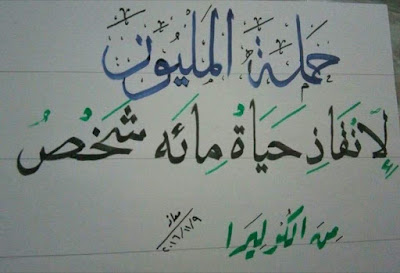 حملة المليون
لِإنْقَاذِ حَيَاةُ مِائَه شَخْصُ
مِنَ الكُولِيرَا
معاذ
٢٠١٦/١١/٩